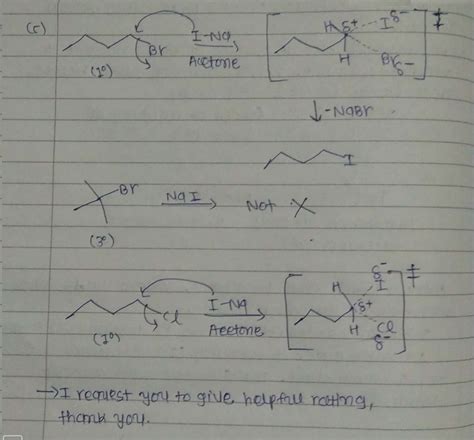 (c)
I-Na
Br
Acetone
(1°)
[ H δ+ I δ- H Br δ- ] ‡
↓ -NaBr
I
Br
NaI
Not X
(3°)
Cl
I-Na
Acetone
(1°)
[ H δ+ I δ- H Cl δ- ] ‡
→ I request you to give helpfull ratting,
thank you.